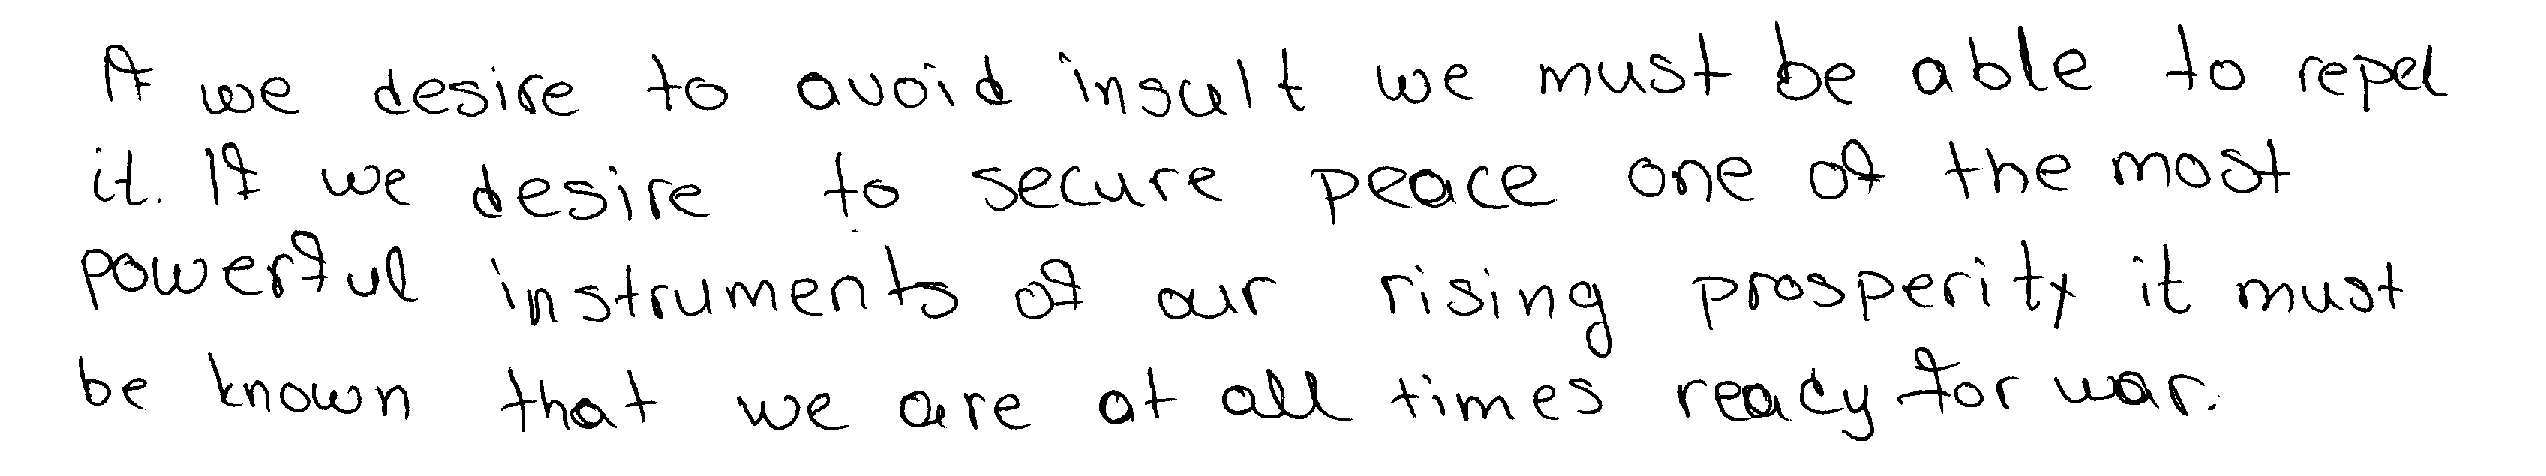 If we desire to avoid insult we must be able to repel
it. If we desire to secure peace one of the most
powerful instruments of our rising prosperity it must
be known that we are at all times ready for war.